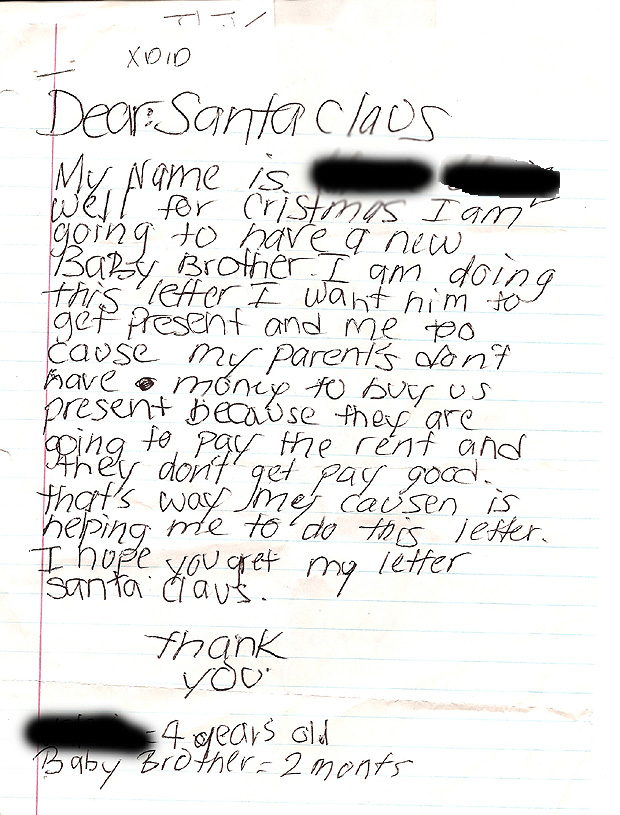 XOIO
Dear: Santa Claus
My Name is
well for Cristmas I am
going to have a new
Baby Brother. I am doing
this letter I want him to
get present and me too
cause my parent's don't
have money to buy us
present because they are
going to pay the rent and
they don't get pay good.
that's way mey causen is
helping me to do this letter.
I hope you get my letter
santa claus.
thank
you.
-4 years old
Baby Brother = 2 monts